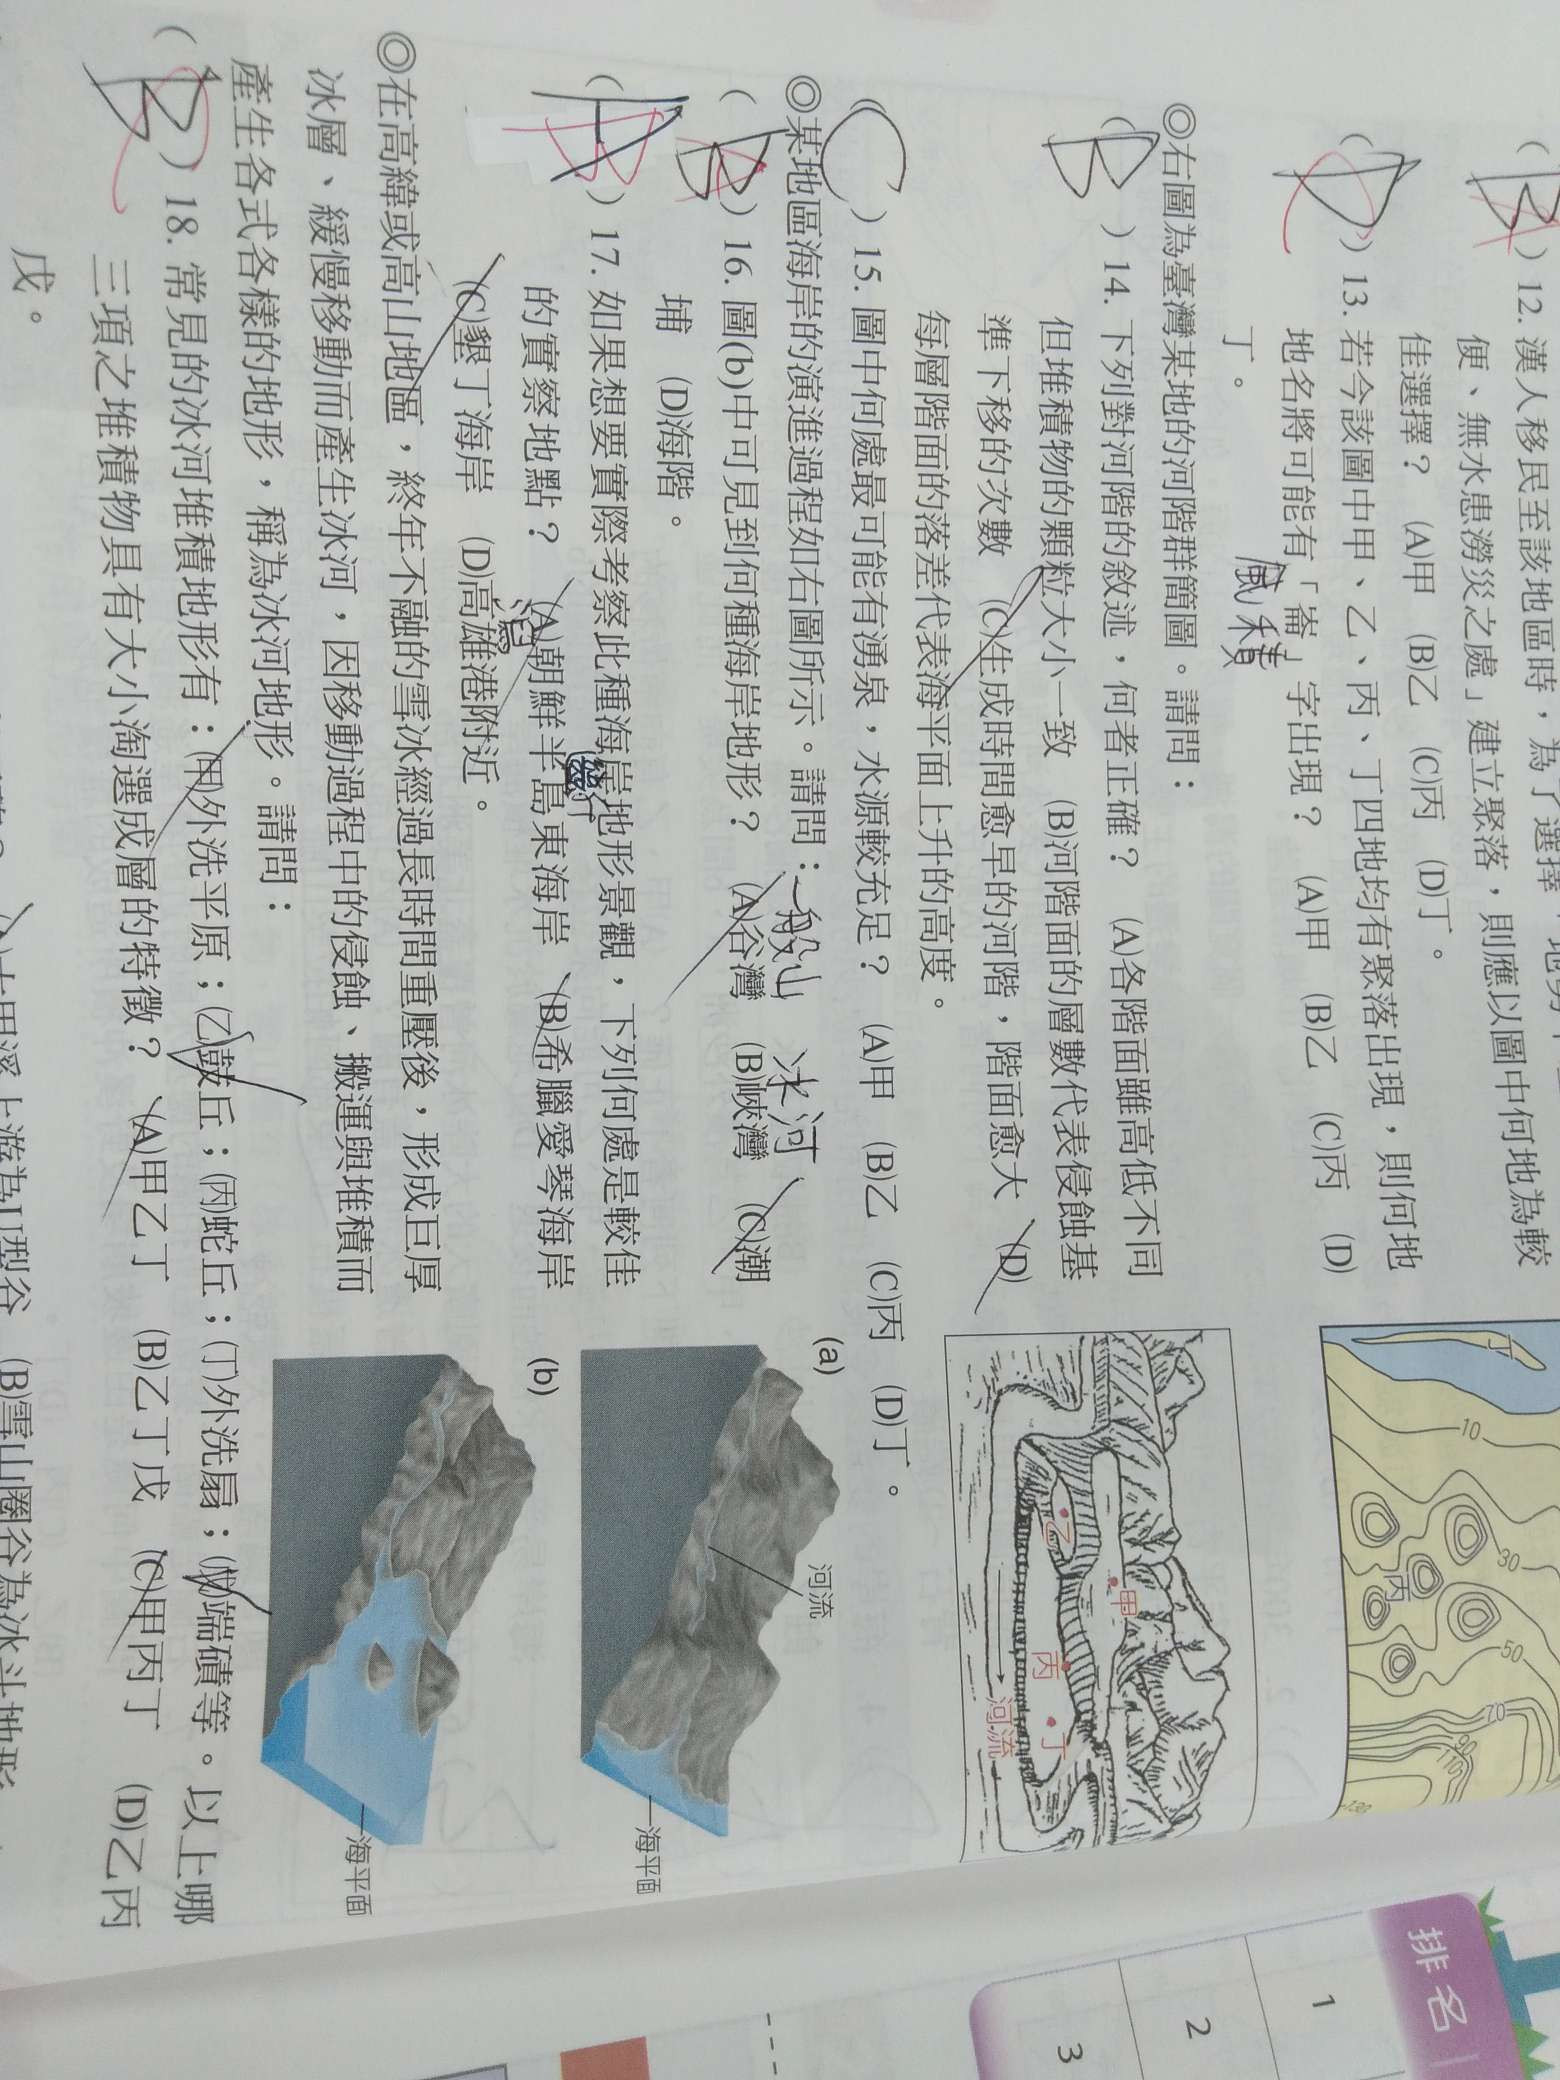 12. 漢人移民至該地區時，為了選擇「地勢
便、無水患澇災之處」建立聚落，則應以圖中何地為較
佳選擇？ (A)甲 (B)乙 (C)丙 (D)丁。
( D ) 13. 若今該圖中甲、乙、丙、丁四地均有聚落出現，則何地
地名將可能有「崙」字出現？ (A)甲 (B)乙 (C)丙 (D)
風積
丁。
10
30
50
70
90
110
130
丙
◎右圖為臺灣某地的河階群簡圖。請問：
( B ) 14. 下列對河階的敘述，何者正確？ (A)各階面雖高低不同
但堆積物的顆粒大小一致 (B)河階面的層數代表侵蝕基
準下移的次數 (C)生成時間愈早的河階，階面愈大 (D)
每層階面的落差代表海平面上升的高度。
( C ) 15. 圖中何處最可能有湧泉，水源較充足？ (A)甲 (B)乙 (C)丙 (D)丁。
乙
甲
丙
丁
河流
◎某地區海岸的演進過程如右圖所示。請問：
一般山
冰河
( B ) 16. 圖(b)中可見到何種海岸地形？ (A)谷灣 (B)峽灣 (C)潮
埔 (D)海階。
( A ) 17. 如果想要實際考察此種海岸地形景觀，下列何處是較佳
的實察地點？ (A)朝鮮半島東海岸 (B)希臘愛琴海岸
(C)墾丁海岸 (D)高雄港附近。
(a)
河流
海平面
(b)
海平面
◎在高緯或高山地區，終年不融的雪冰經過長時間重壓後，形成巨厚
冰層、緩慢移動而產生冰河，因移動過程中的侵蝕、搬運與堆積而
產生各式各樣的地形，稱為冰河地形。請問：
( B ) 18. 常見的冰河堆積地形有：(甲)外洗平原；(乙)鼓丘；(丙)蛇丘；(丁)外洗扇；(戊)端磧等。以上哪
三項之堆積物具有大小淘選成層的特徵？ (A)甲乙丁 (B)乙丁戊 (C)甲丙丁 (D)乙丙
戊。
大甲溪上游為U型谷 (B)雪山圈谷為冰斗地形
排名
1
2
3